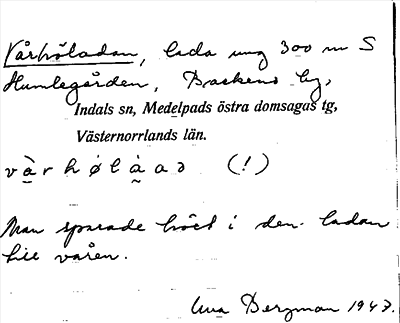 Vårhöladan, lada ung 300 m S
Humlegården, Backens by,
Indals sn, Medelpads östra domsagas tg,
Västernorrlands län.
vàrhølàaə (!)
Man sparade höet i den ladan
till våren.
Una Bergman 1947.